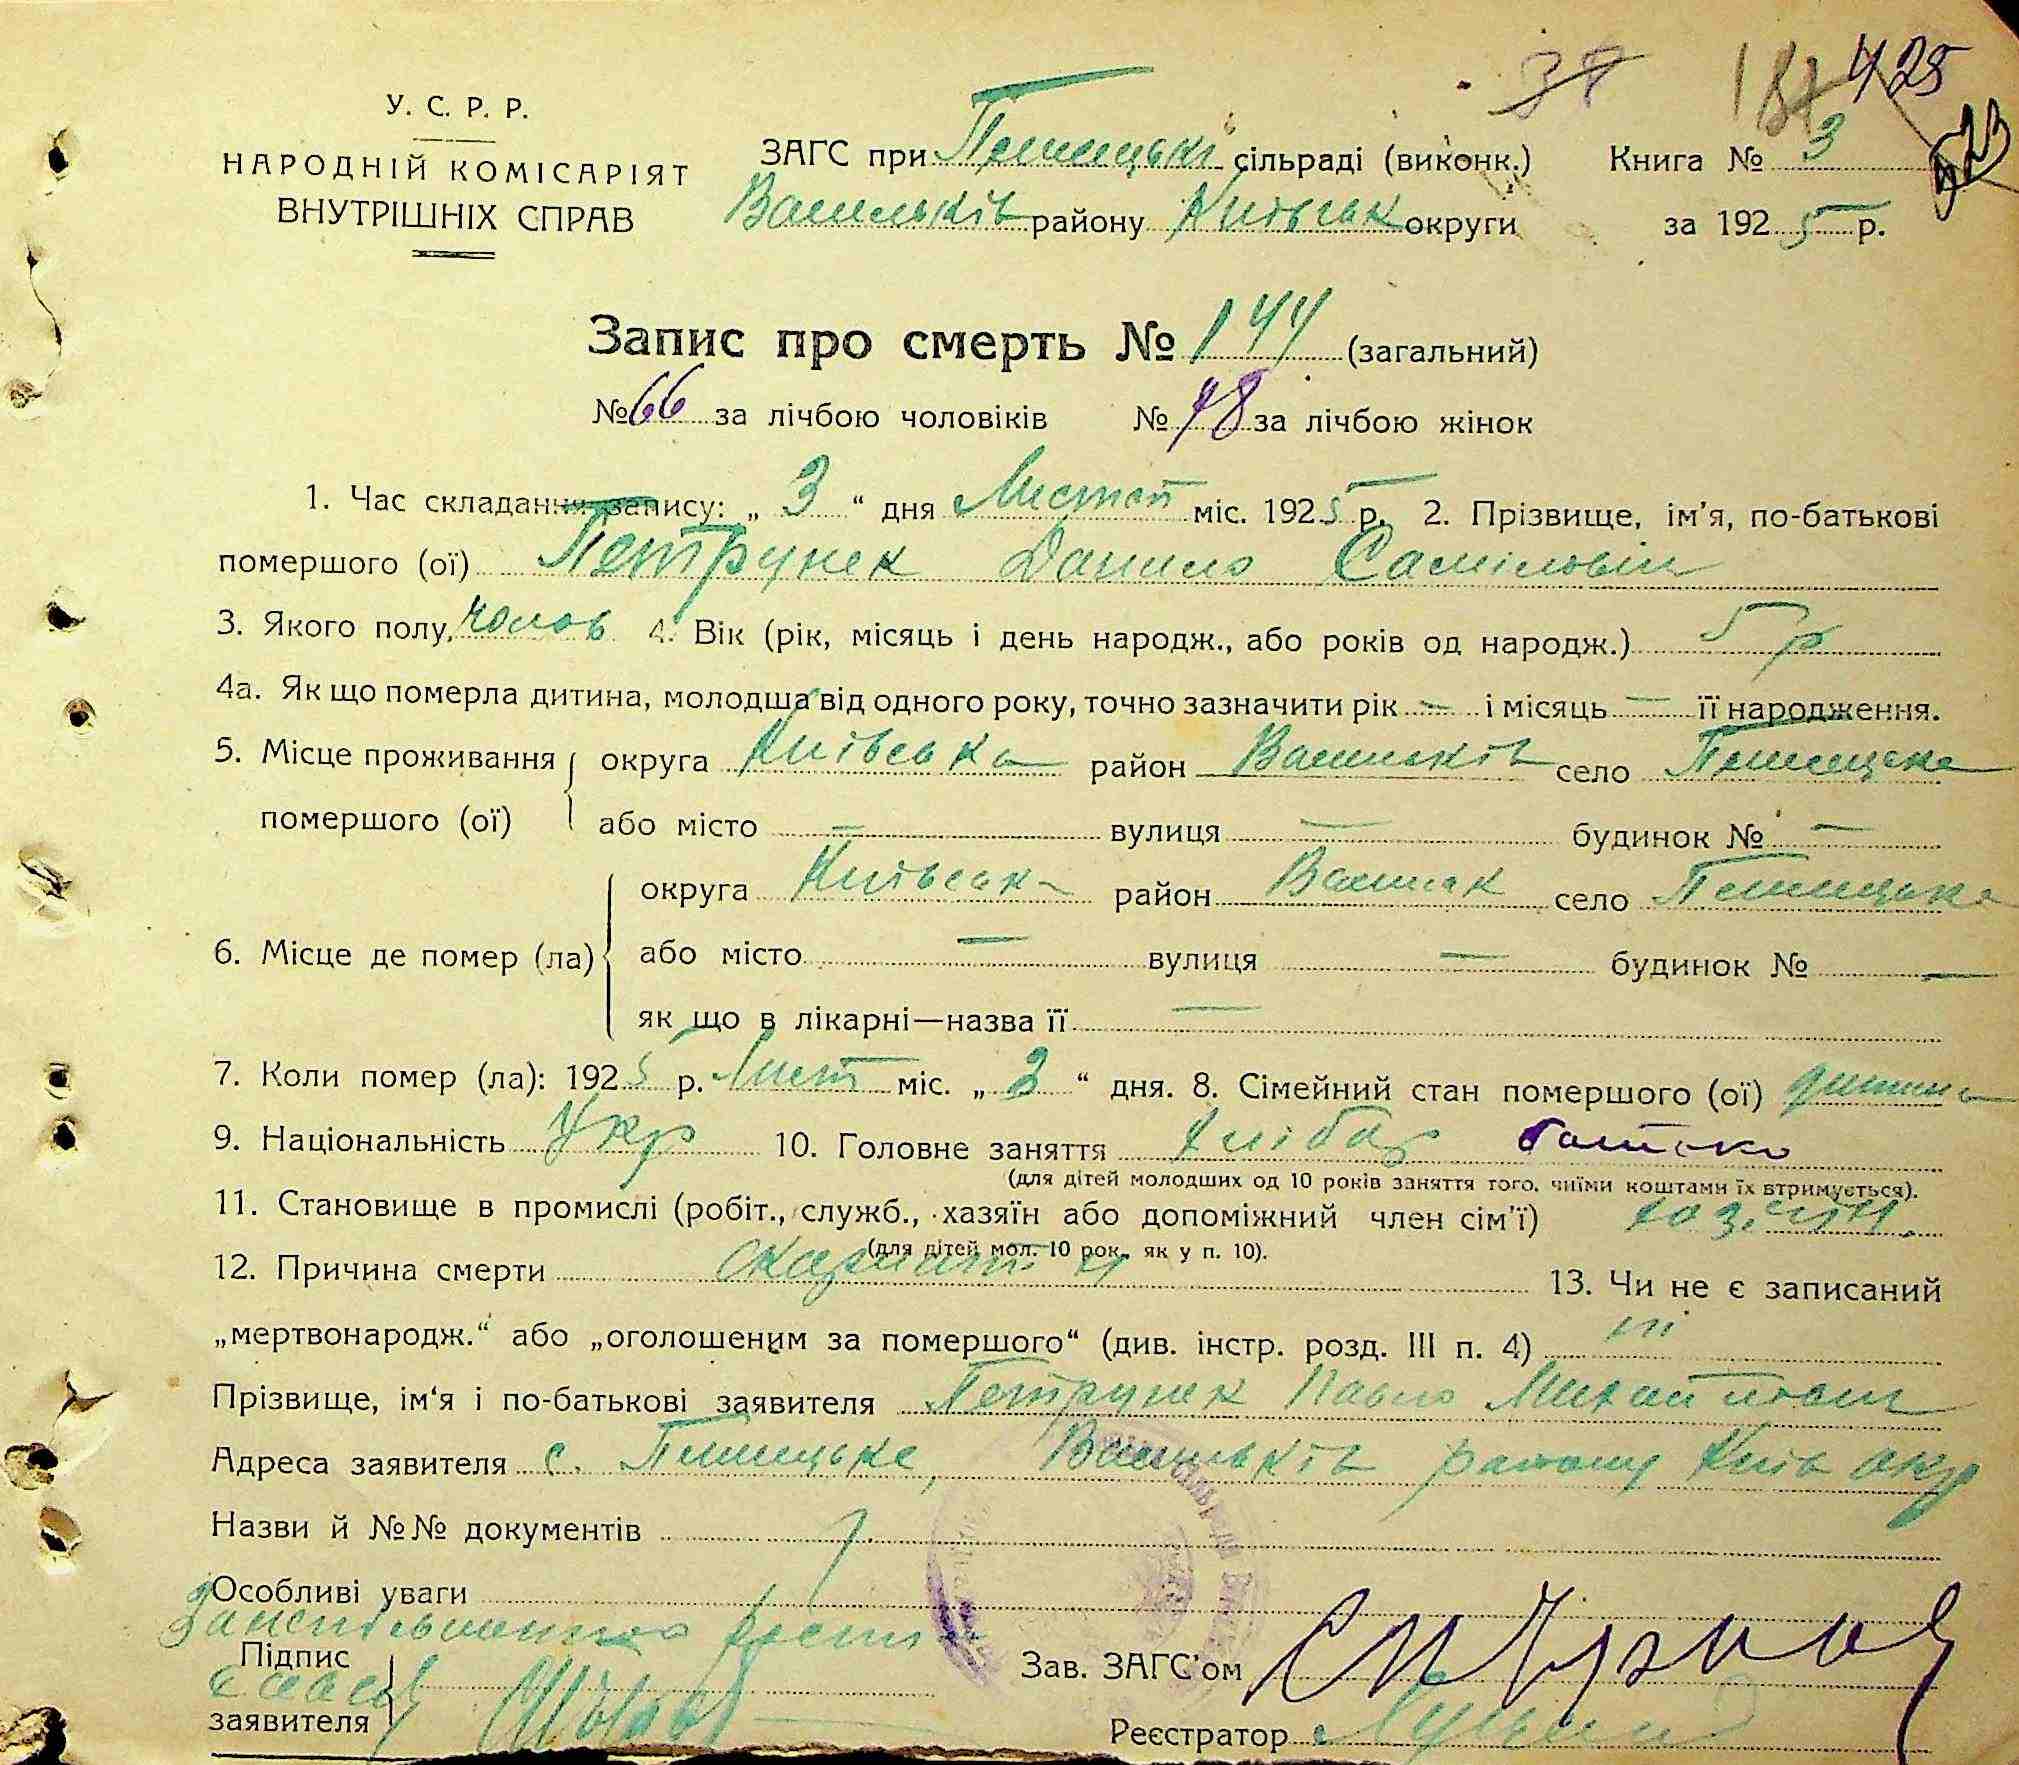 37 187 425
523
У. С. Р. Р.
НАРОДНІЙ КОМІСАРІЯТ
ВНУТРІШНІХ СПРАВ
ЗАГС при сільраді (виконк.) Книга № 3
Васильків району Київськ округи за 1925 р.
Запис про смерть № 144 (загальний)
№ 66 за лічбою чоловіків № 78 за лічбою жінок
1. Час складання запису: „ 3 “ дня Листоп міс. 1925 р. 2. Прізвище, ім'я, по-батькові
помершого (ої) Петрунек Данило Самілович
3. Якого полу, чолов 4. Вік (рік, місяць і день народж., або років од народж.) 5 р
4а. Як що померла дитина, молодша від одного року, точно зазначити рік — і місяць — її народження.
5. Місце проживання округа Київська район Васильків село
помершого (ої) або місто — вулиця — будинок № —
округа Київськ район село
6. Місце де помер (ла) або місто — вулиця — будинок № —
як що в лікарні—назва її —
7. Коли помер (ла): 1925 р. Лист міс. „ 3 “ дня. 8. Сімейний стан помершого (ої) дитина
9. Національність Укр 10. Головне заняття хлібор батько
(для дітей молодших од 10 років заняття того, чиїми коштами їх втримується).
11. Становище в промислі (робіт., служб., хазяїн або допоміжний член сім'ї) хазяїн.
(для дітей мол. 10 рок. як у п. 10).
12. Причина смерти скарлатин 13. Чи не є записаний
„мертвонародж.“ або „оголошеним за помершого“ (див. інстр. розд. III п. 4) ні
Прізвище, ім'я і по-батькові заявителя Петрунек Павло Михайлович
Адреса заявителя с. Васильків району Київ окр
Назви й №№ документів
Особливі уваги
Підпис
заявителя
Зав. ЗАГС'ом
Реєстратор